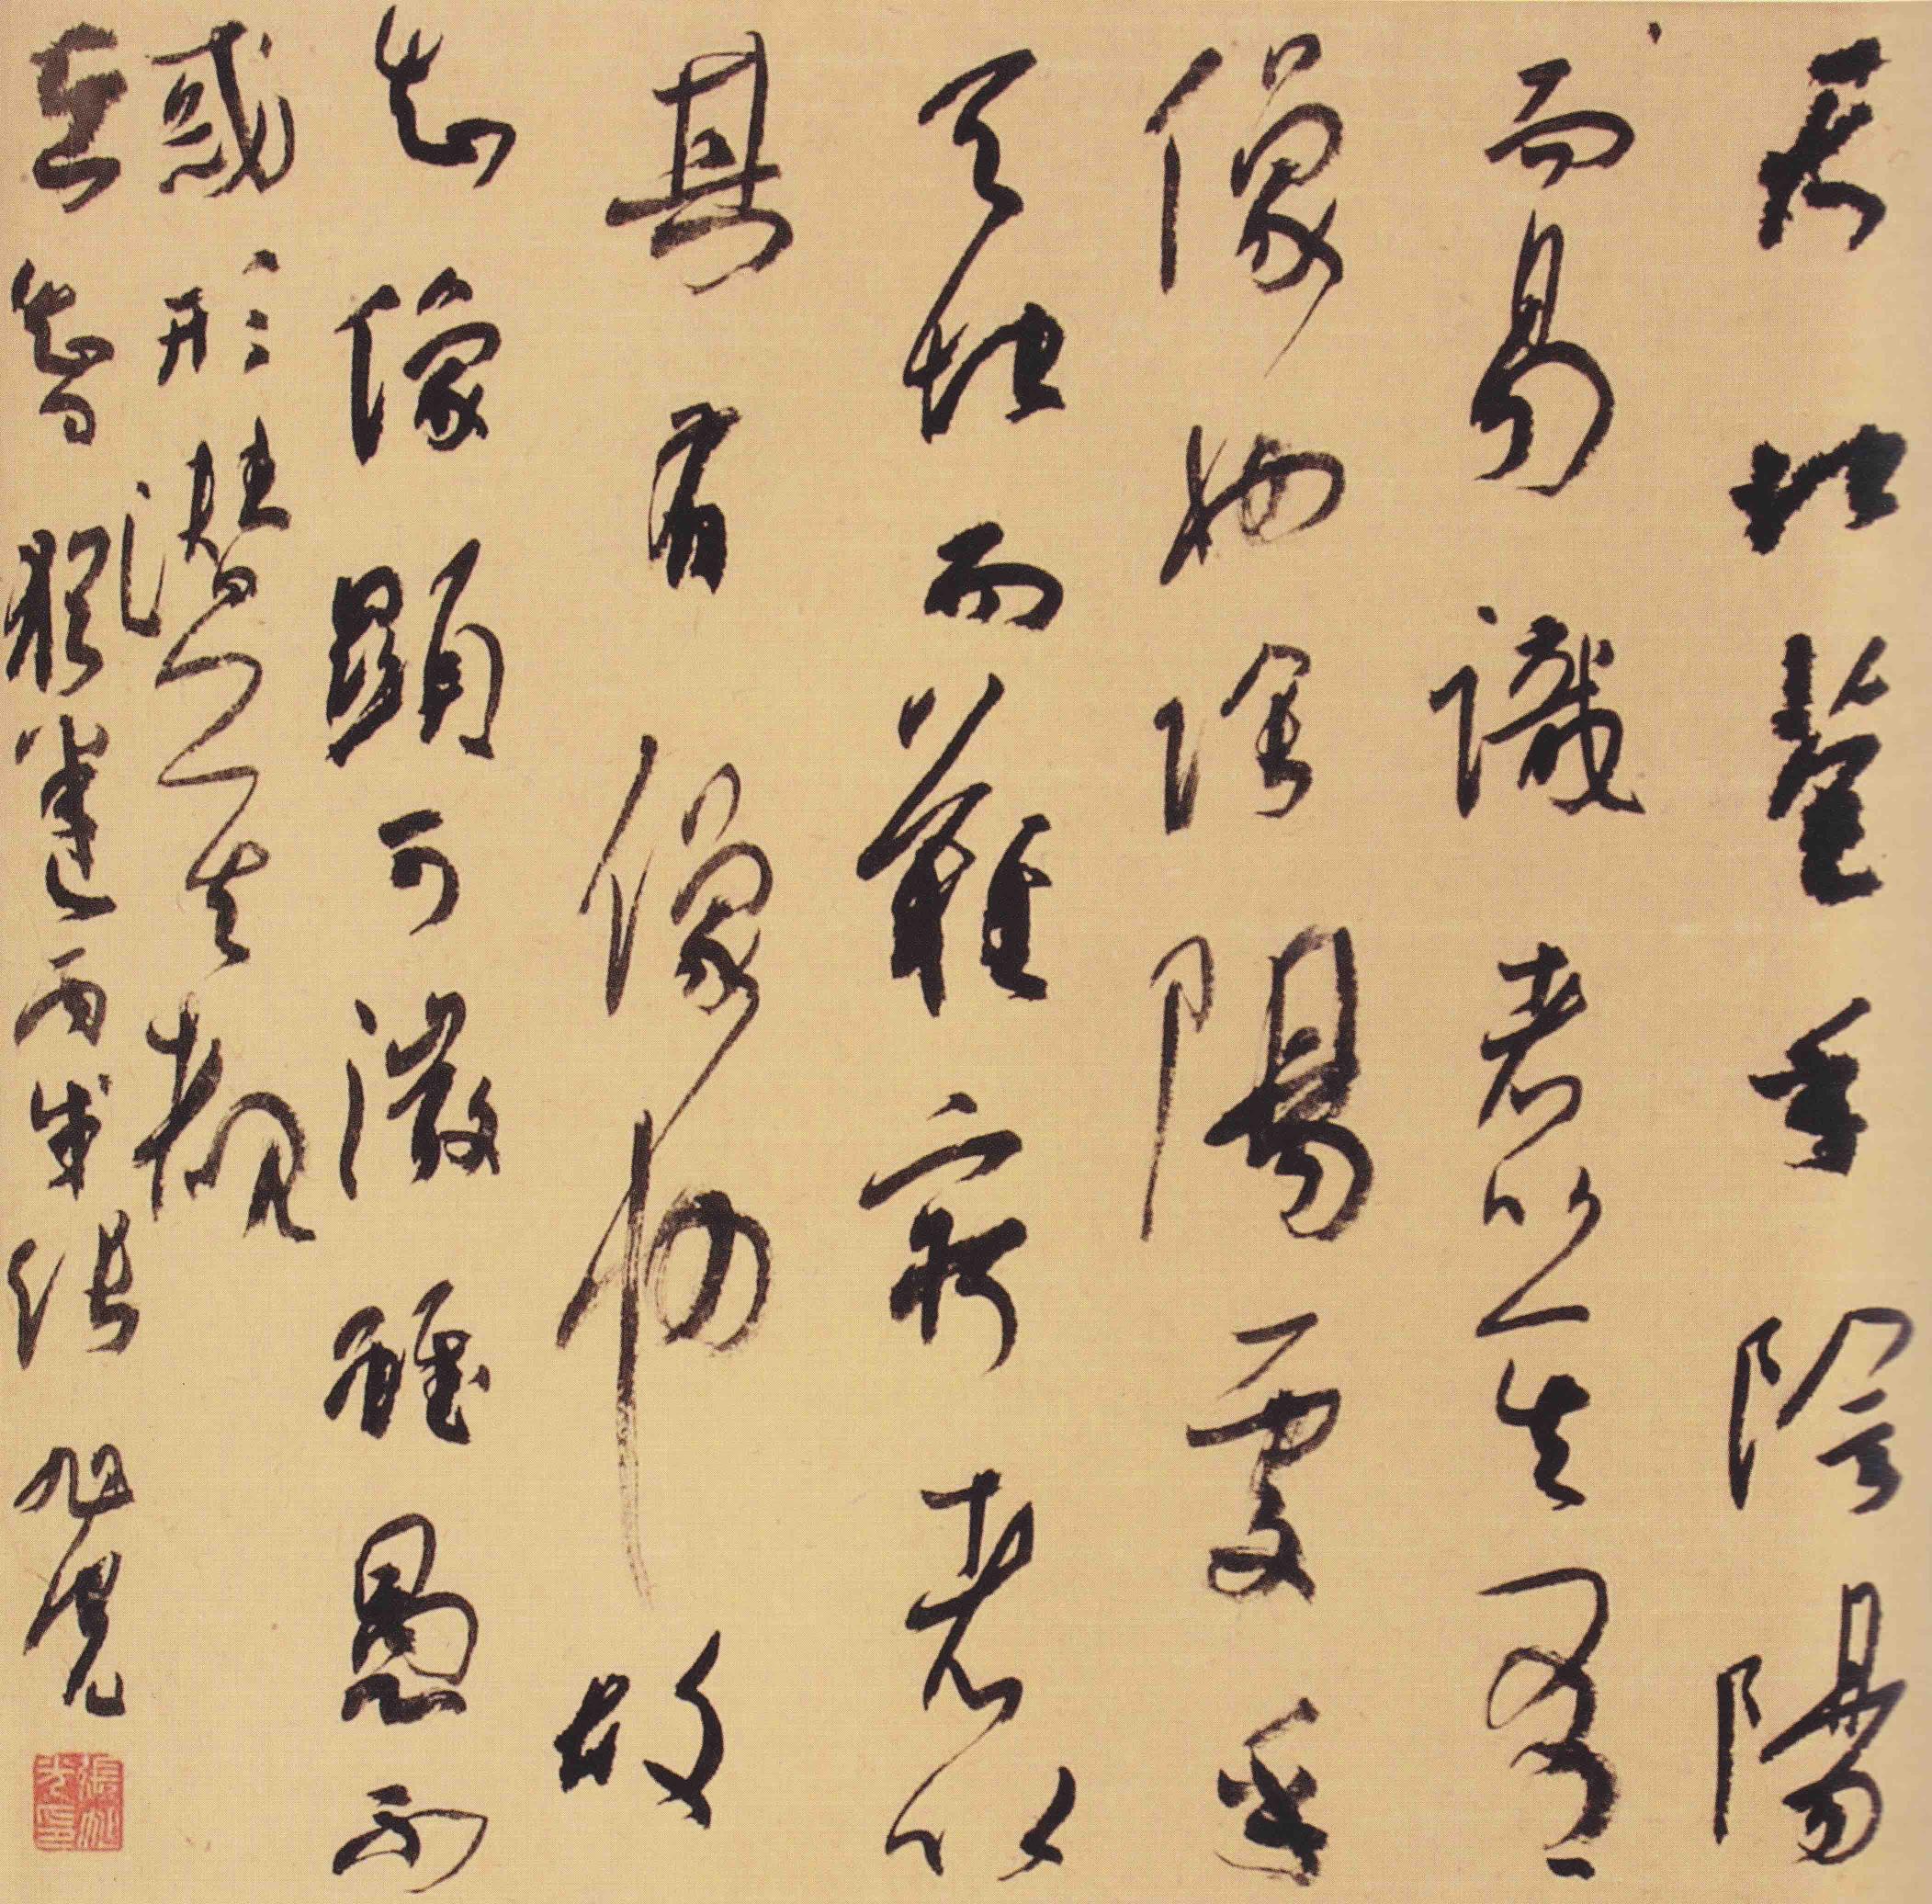 天地苞乎陰陽
而易識者以其有
像也陰陽處乎
天地而難窮者以
其有像也故
知像顯可徵雖愚不
惑形潛莫覩
在智猶迷丙戌張旭光
張旭光印